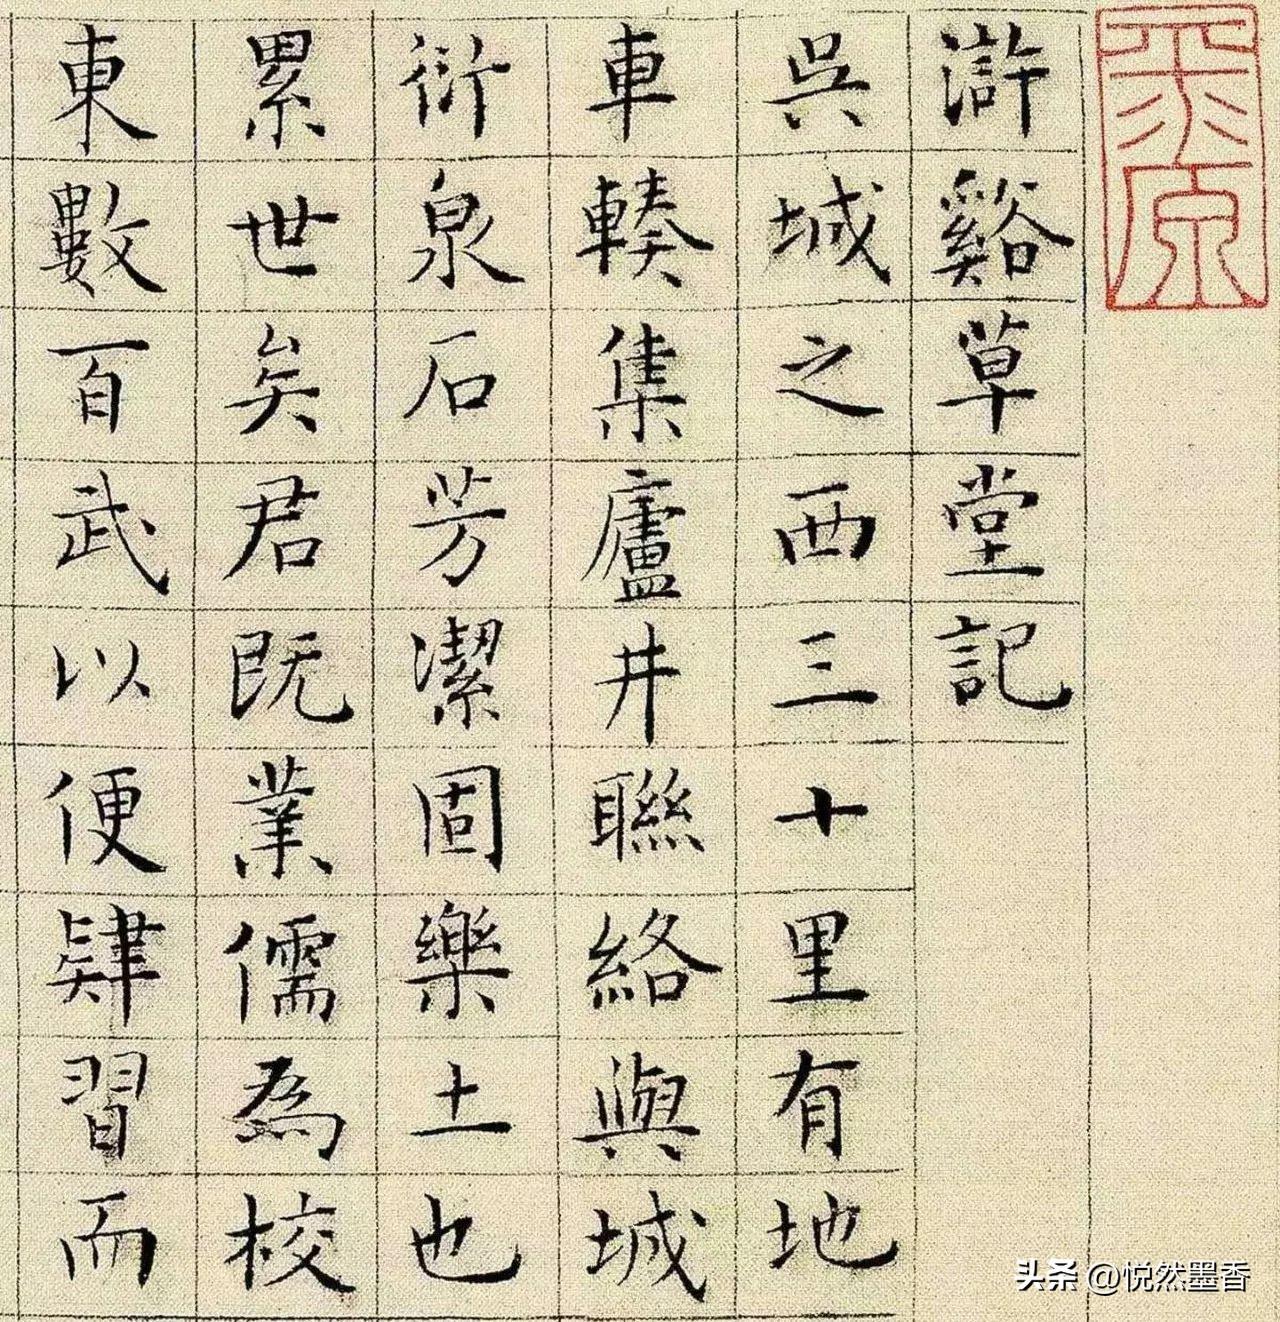 滸谿草堂記
吳城之西三十里有地
車輳集廬井聯絡與城
衍泉石芳潔固樂土也
累世矣君既業儒為校
東數百武以便肄習而
頭条 @悦然墨香